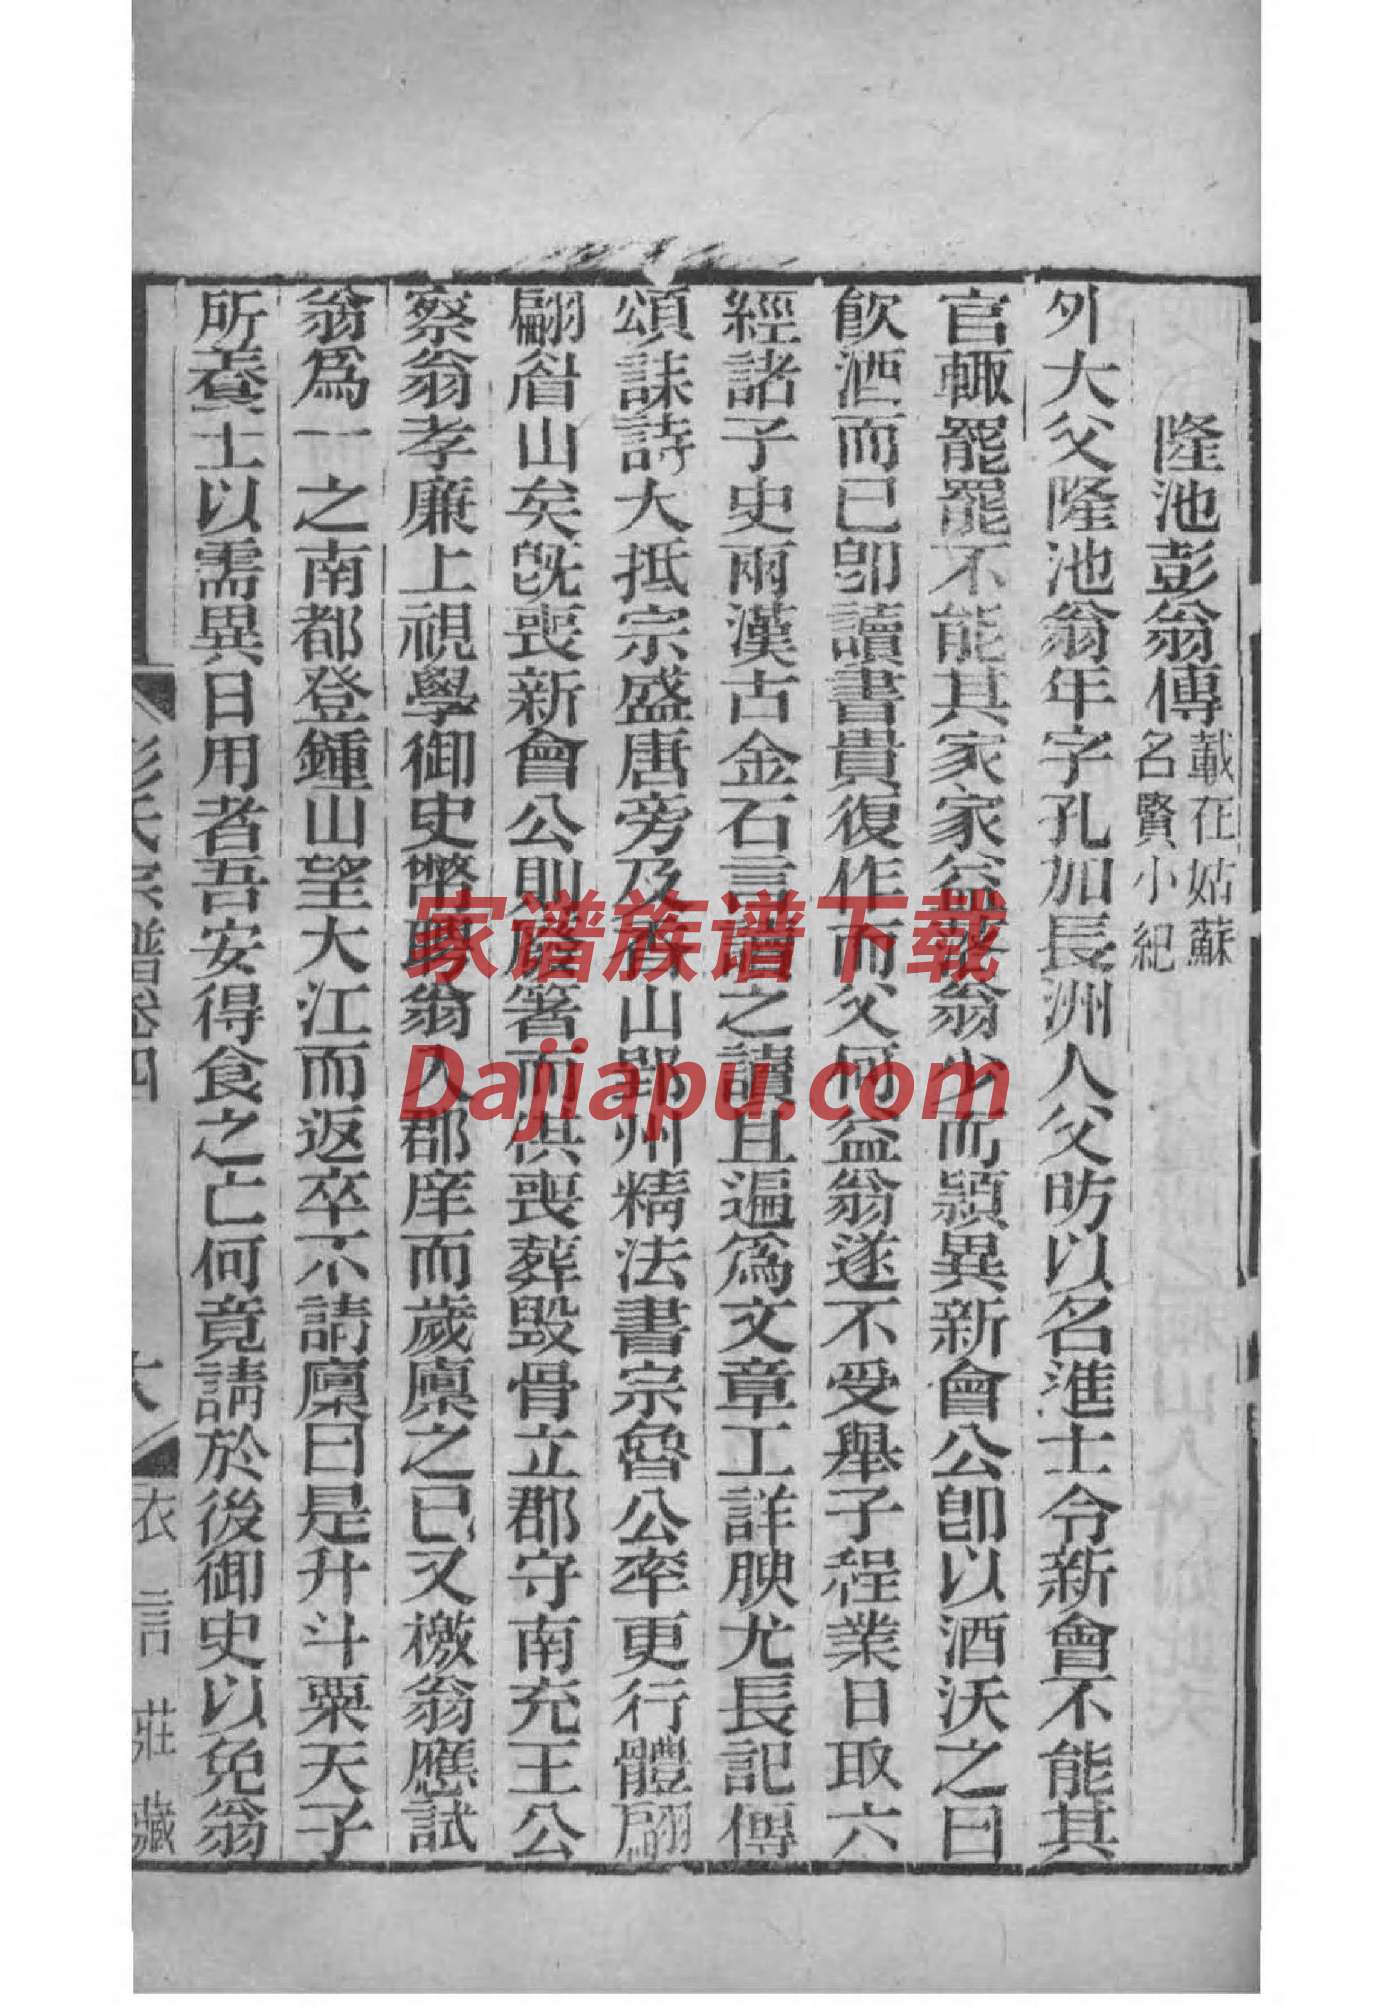 隆池彭翁傳載在姑蘇名賢小紀
外大父隆池翁年字孔加長洲人父昉以名進士令新會不能其
官輙罷罷不能其家家益落翁少而頴異新會公卽以酒沃之曰
飮酒而已卽讀書貴復作而父何益翁遂不受舉子程業日取六
經諸子史兩漢古金石言譜之讀且遍爲文章工詳腴尤長記傳
頌誄詩大抵宗盛唐旁及香山郢州精法書宗魯公率更行體翩
翩眉山矣旣喪新會公則廢箸而供喪葬毀骨立郡守南充王公
察翁孝廉上視學御史幣聘翁入郡庠而歲廩之已又檄翁應試
翁爲一之南都登鍾山望大江而返卒不請廩曰是升斗粟天子
所養士以需異日用者吾安得食之亡何竟請於後御史以免翁
彭氏宗譜卷四
六
衣言莊藏
家谱族谱下载
Dajiapu.com